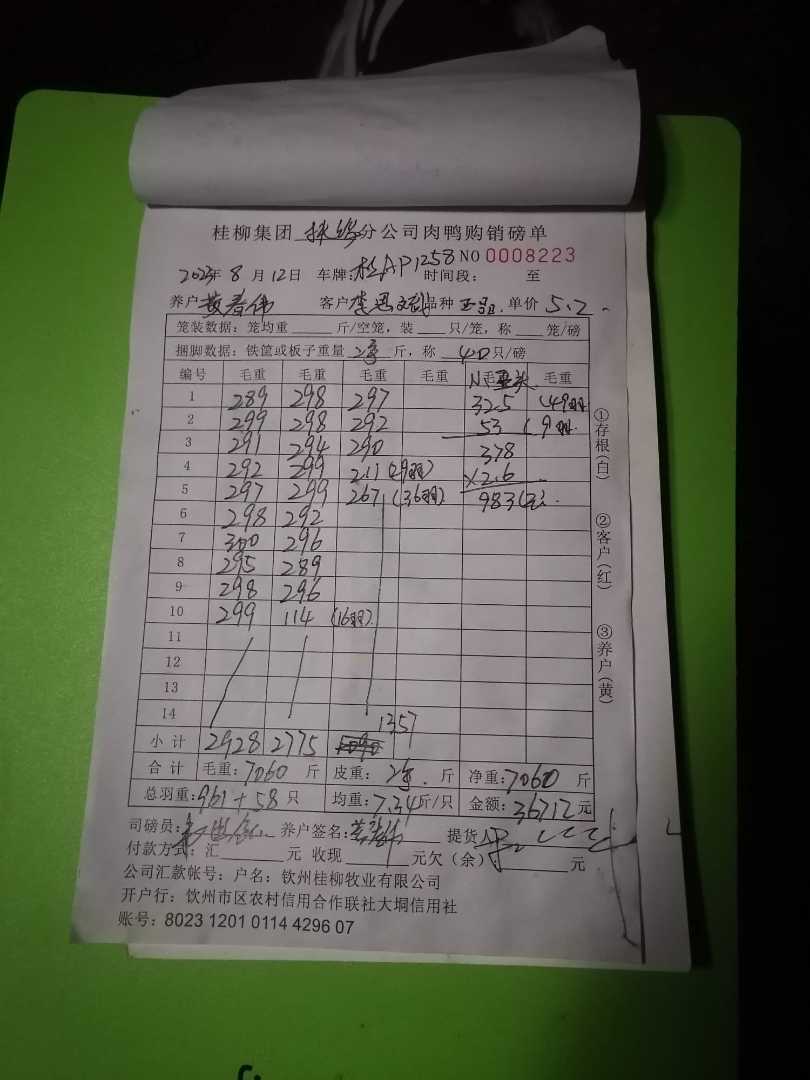 桂柳集团 扶绥 分公司肉鸭购销磅单
NO 0008223
2023年 8 月 12 日 车牌: 桂AP1258 时间段: 至
养户 黄春伟 客户 品种 单价 5.2
笼装数据: 笼均重 斤/空笼, 装 只/笼, 称 笼/磅
捆脚数据: 铁筐或板子重量 斤, 称 40 只/磅
编号 毛重 毛重 毛重 毛重 毛重 毛重
1 289 298 297 325 (49羽
2 299 298 292 53 (9羽
3 291 294 290 378
4 292 299 211 (29羽) ×2.6
5 297 299 267 (36羽) 983
6 298 292
7 300 296
8 295 289
9 298 296
10 299 114 (16羽)
11
12
13
14
小计 2928 2775 1357
合计 毛重: 7060 斤 皮重: 斤 净重: 7060 斤
总羽重: 961+58 只 均重: 7.34 斤/只 金额: 36712 元
司磅员: 养户签名: 提货人
付款方式: 汇 元 收现 元欠(余) 元
公司汇款帐号: 户名: 钦州桂柳牧业有限公司
开户行: 钦州市区农村信用合作联社大垌信用社
账号: 8023 1201 0114 4296 07
①存根(白)
②客户(红)
③养户(黄)